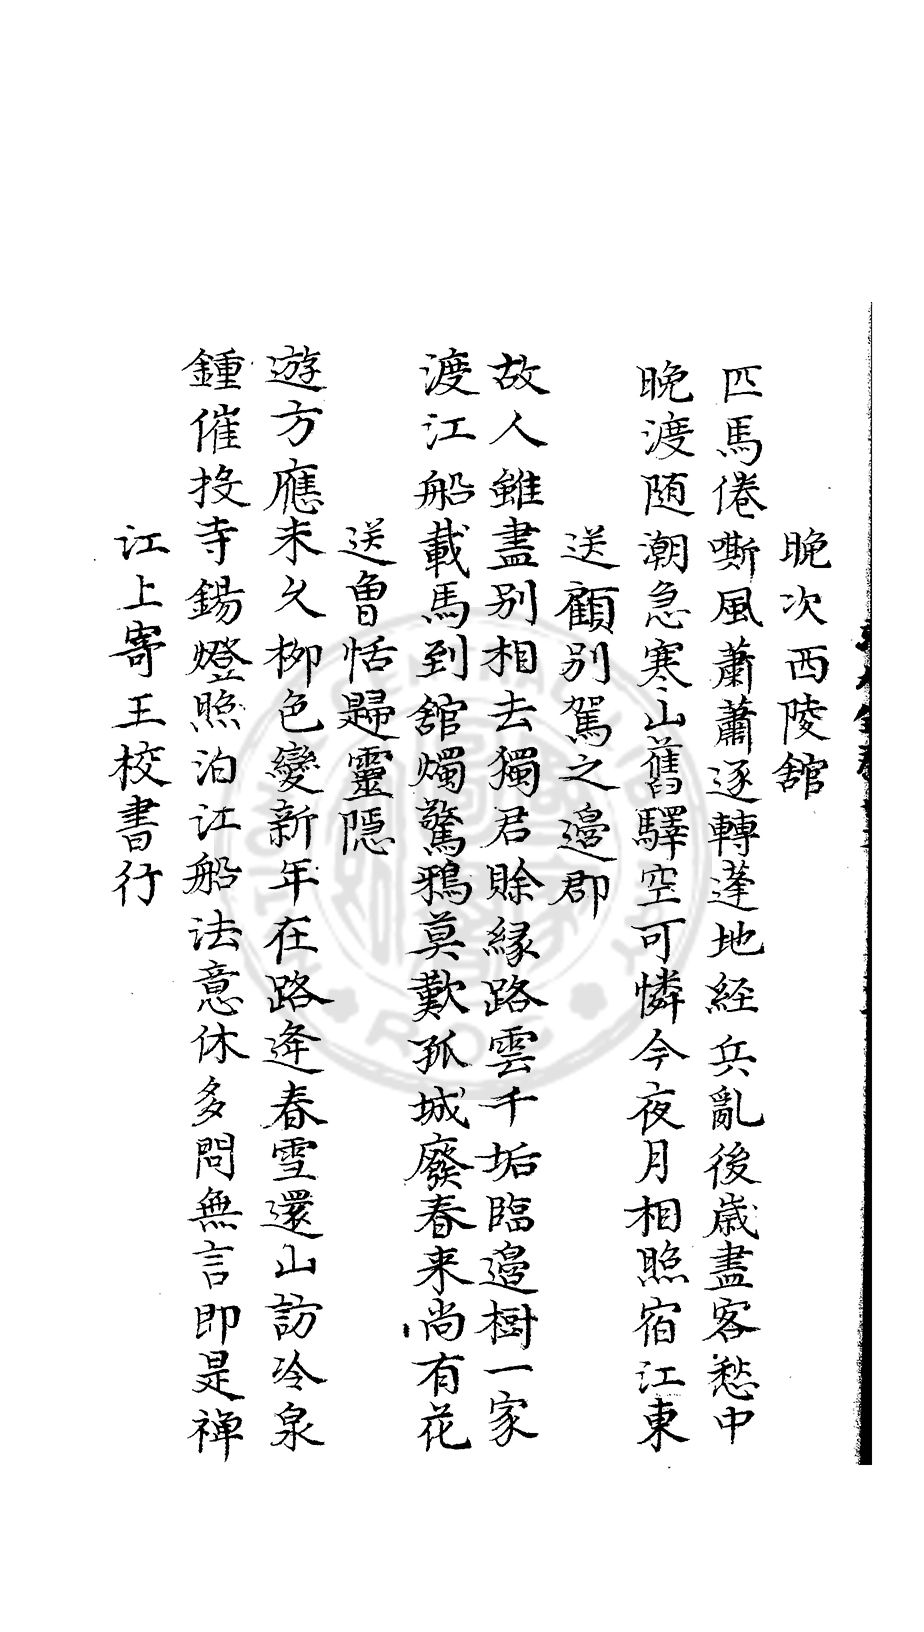 晚次西陵舘
匹馬倦嘶風蕭蕭逐轉蓬地經兵亂後歲盡客愁中
晚渡随潮急寒山舊驛空可憐今夜月相照宿江東
送顧別駕之邉郡
故人雖盡別相去獨君賒緣路雲千垢臨邉樹一家
渡江船載馬到舘燭驚鴉莫歎孤城廢春来尚有花
送魯恬歸靈隠
遊方應未久栁色變新年在路逢春雪還山訪冷泉
鍾催投寺錫燈照泊江船法意休多問無言即是禅
江上寄王校書行